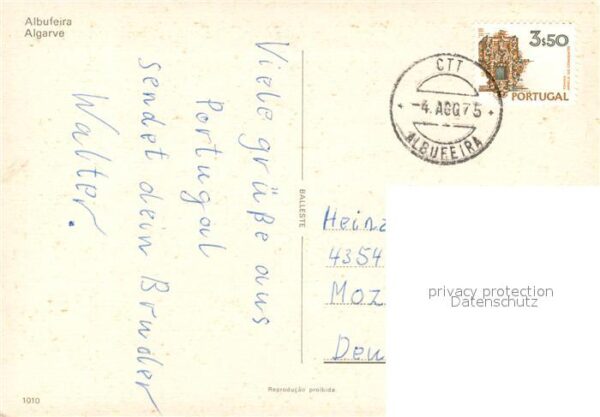 Albufeira
Algarve
Viele grüße aus
Portugal
sendet dein Bruder
Walter.
3$50
PORTUGAL
CTT
-4.AGO.75
ALBUFEIRA
BALLESTE
Heinz
4354
Moz
Deu
privacy protection
Datenschutz
Reprodução proibida
1010